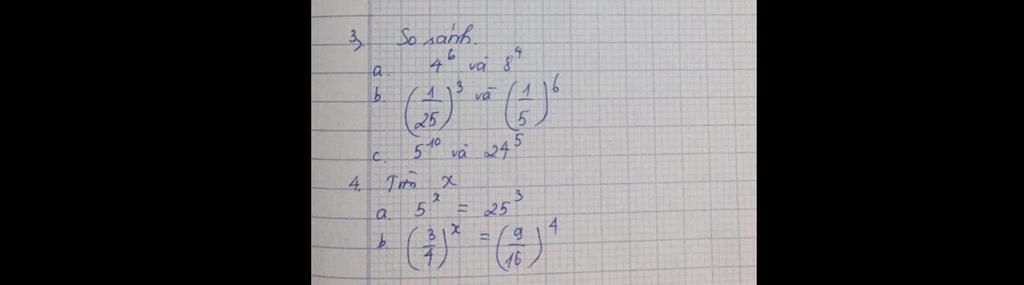 3, So sánh.
a. 4^6 và 8^4
b. (1/25)^3 và (1/5)^6
c. 5^10 và 24^5
4. Tìm x
a. 5^x = 25^3
b (3/4)^x = (9/16)^4